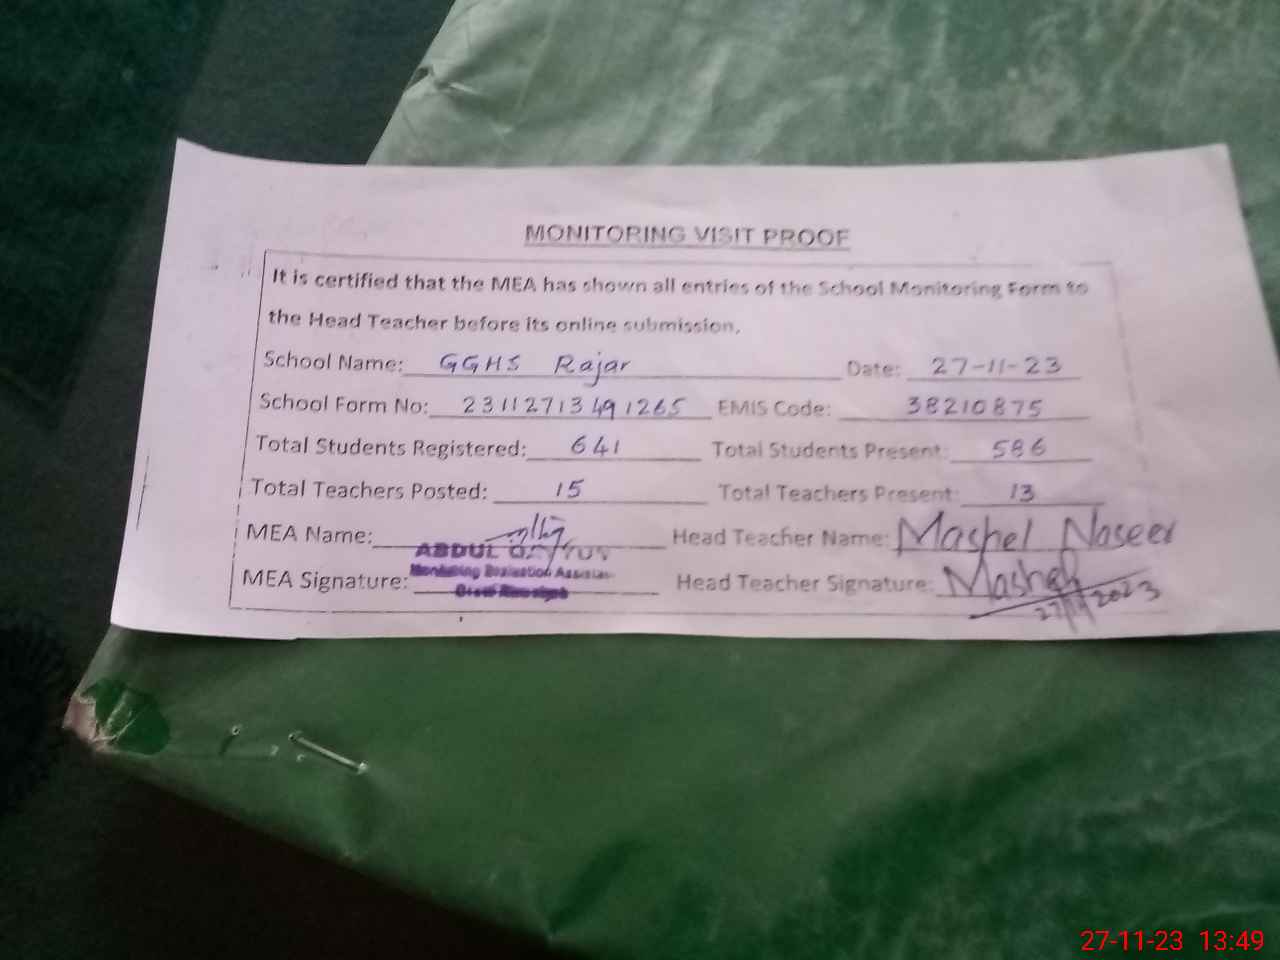 MONITORING VISIT PROOF
It is certified that the MEA has shown all entries of the School Monitoring Form to
the Head Teacher before its online submission.
School Name: GGHS Rajar Date: 27-11-23
School Form No: 23112713491265 EMIS Code: 38210875
Total Students Registered: 641 Total Students Present: 586
Total Teachers Posted: 15 Total Teachers Present: 13
MEA Name: Head Teacher Name: Mashel Naseer
ABDUL
Monitoring Evaluation Assistant
MEA Signature: Head Teacher Signature: Mashel
27/11/2023
27-11-23 13:49